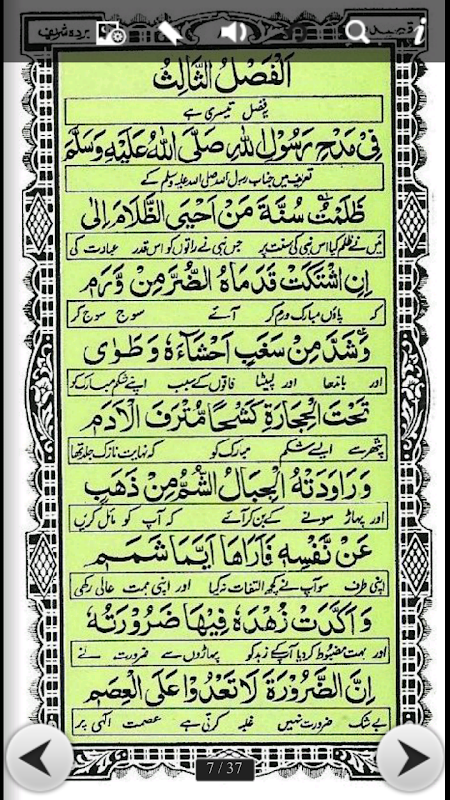 قصيد
برده شریف
اَلْفَصْلُ الثَّالِثُ
یفصل تیسری ہے
فِیْ مَدْحِ رَسُوْلِ اللهِ صَلَّى اللهُ عَلَيْهِ وَسَلَّمَ
تعریف میں جناب رسول اللہ صلی اللہ علیہ وسلم کے
ظَلَمْتُ سُنَّةَ مَنْ اَحْيَى الظَّلَامَ اِلٰى
میں نے ظلم کیا اس نبی کی سنت پر جس نبی نے راتوں کو اس قدر عبادت کی
اِنِ اشْتَكَتْ قَدَمَاهُ الضُّرَّ مِنْ وَّرَمٖ
کہ پاؤں مبارک ورم کر آئے سوج سوج کر
وَشَدَّ مِنْ سَغَبٍ اَحْشَآءَهٗ وَطَوٰى
اور باندھا اور لپیٹا فاقوں کے سبب اپنے شکم مبارک کو
تَحْتَ الْحِجَارَةِ كَشْحًا مُّتْرَفَ الْاَدَمٖ
پتھر سے ایسے شکم مبارک کو کہ نہایت نازک جلد تھا
وَرَاوَدَتْهُ الْجِبَالُ الشُّمُّ مِنْ ذَهَبٍ
اور پہاڑ سونے کے بن کر آئے کہ آپ کو مائل کریں
عَنْ نَّفْسِهٖ فَاَرَاهَا اَيَّمَا شَمَمٖ
اپنی طرف سو آپ نے کچھ التفات نہ کیا اور اپنی ہمت عالی رکھی
وَاَكَّدَتْ زُهْدَهٗ فِيْهَا ضَرُوْرَتُهٗ
اور بہت مضبوط کر دیا آپ کے زہد کو پہاڑوں سے ضرورت نے
اِنَّ الضَّرُوْرَةَ لَا تَعْدُوْا عَلَى الْعِصَمٖ
بے شک ضرورت نہیں غلبہ کرتی ہے عصمت الٰہی پر
7 / 37